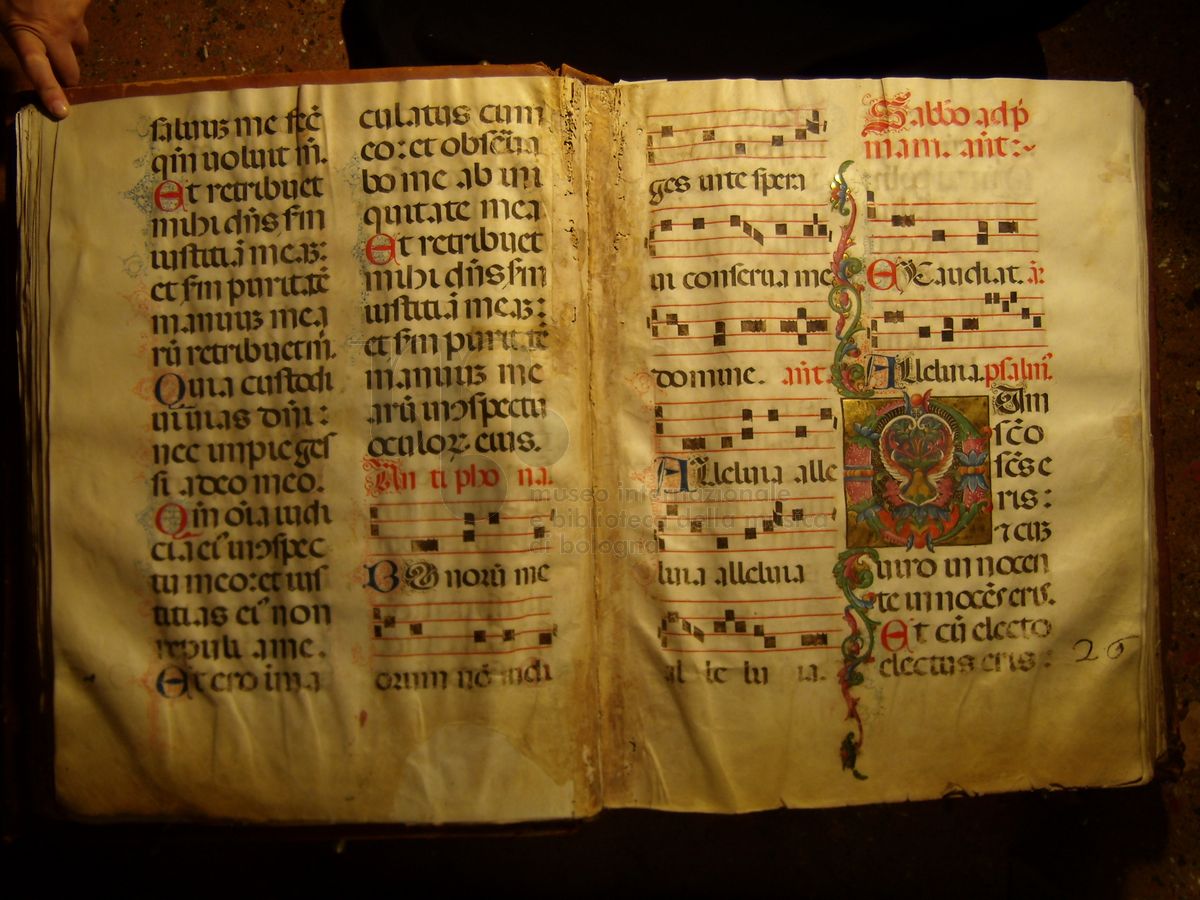 saluuz me fec̄
qm̄ uoluit m̄.
Et retribuet
mihi dn̄s s̄m
iustitiā meā:
et s̄m puritatē
manuuz mea
rū retribuet m̄.
Quia custodi
ui uias dn̄i:
nec impie ges
si a deo meo.
Qm̄ oīa iudi
cia ei' in ↄspec
tu meo: et ius
titias ei' non
repuli a me.
Et ero ima
culatus cum
eo: et obserua
bo me ab ini
quitate mea
Et retribuet
mihi dn̄s s̄m
iustitiā meā:
et s̄m puritatē
manuuz me
arū in ↄspectu
oculoꝝ eius.
An ti pho na.
BO norū me
orum nō indi
ges in te spera
ui conserua me
domine. an̄t.
Alleluia alle
luia alleluia
al le lu ia.
Sabbō ad p̄
mam. an̄t:~
EXaudiat. an̄.
Alleluia. psalm'.
Cum
sc̄o
sc̄s e
ris:
⁊ cuz
uiro in nocen
te in nocēs eris.
Et cū electo
electus eris:
26
museo internazionale
e biblioteca della musica
di bologna